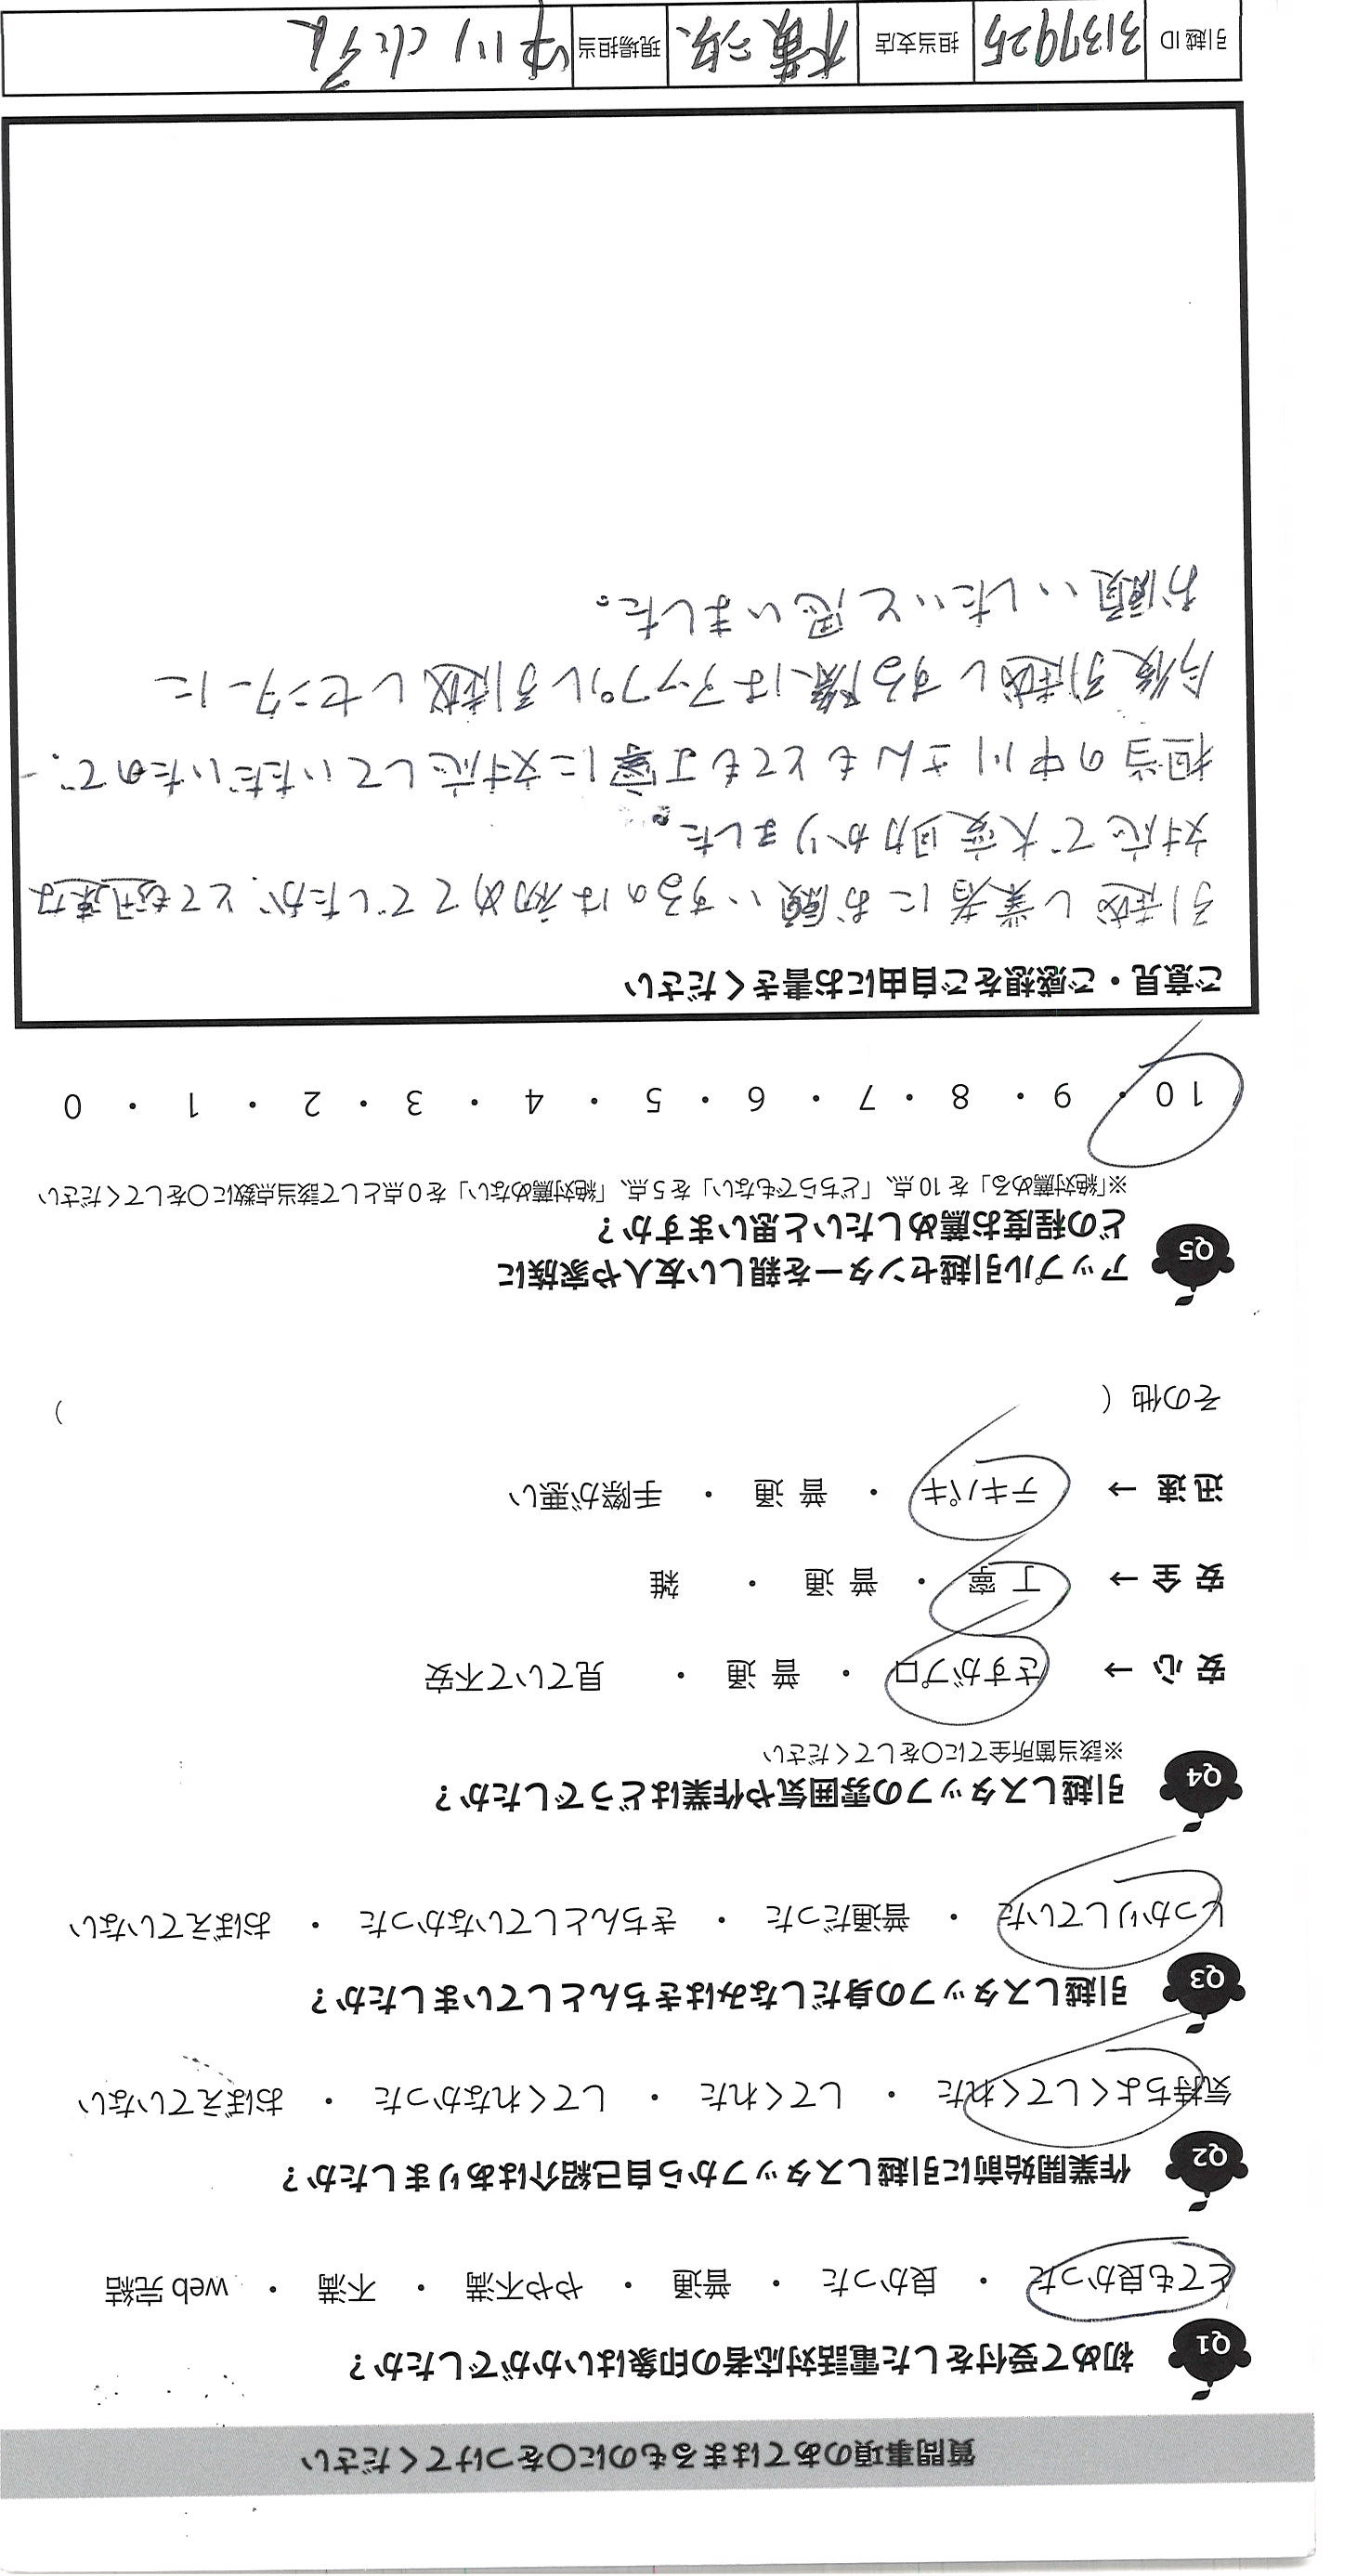 質問事項のあてはまるものに〇をつけてください
Q1 初めて受付をした電話対応者の印象はいかがでしたか？
とても良かった ・ 良かった ・ 普通 ・ やや不満 ・ 不満 ・ web 完結
Q2 作業開始前に引越しスタッフから自己紹介はありましたか？
気持ちよくしてくれた ・ してくれた ・ してくれなかった ・ おぼえていない
Q3 引越しスタッフの身だしなみはきちんとしていましたか？
しっかりしていた ・ 普通だった ・ きちんとしていなかった ・ おぼえていない
Q4 引越しスタッフの雰囲気や作業はどうでしたか？
※該当箇所全てに〇をしてください
安 心 → さすがプロ ・ 普 通 ・ 見ていて不安
安 全 → 丁 寧 ・ 普 通 ・ 雑
迅 速 → テキパキ ・ 普 通 ・ 手際が悪い
その他（ ）
Q5 アップル引越センターを親しい友人や家族に
どの程度お薦めしたいと思いますか？
※「絶対薦める」を 10 点、「どちらでもない」を 5 点、「絶対薦めない」を 0 点として該当点数に〇をしてください
10 ・ 9 ・ 8 ・ 7 ・ 6 ・ 5 ・ 4 ・ 3 ・ 2 ・ 1 ・ 0
ご意見・ご感想をご自由にお書きください
引越し業者にお願いするのは初めてでしたが、とても迅速な
対応で大変助かりました。
担当の中川さんもとても丁寧に対応していただいたので、
今後引越しする際はアップル引越しセンターに
お願いしたいと思いました。
引越 ID 3137925 担当支店 横浜 現場担当 中川